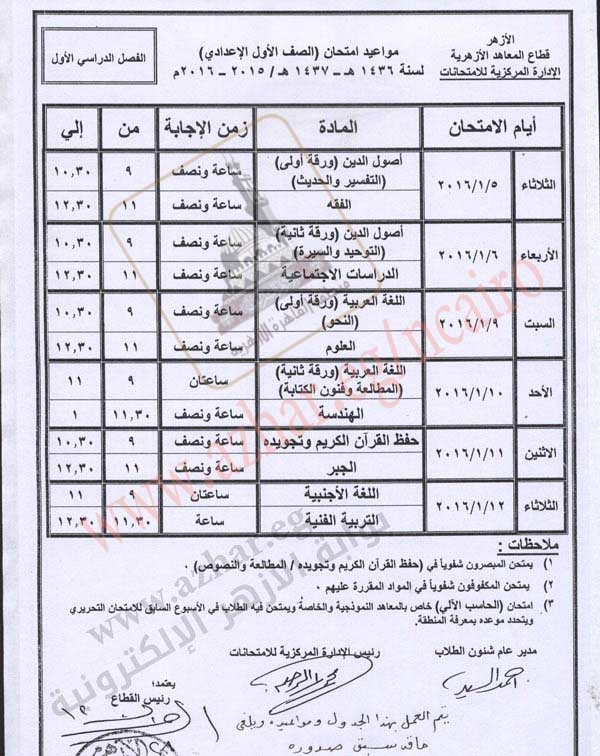 الأزهر
قطاع المعاهد الأزهرية
الإدارة المركزية للامتحانات
مواعيد امتحان (الصف الأول الإعدادي)
لسنة ١٤٣٦ هـ ـ ١٤٣٧ هـ / ٢٠١٥ ـ ٢٠١٦م
الفصل الدراسي الأول
أيام الامتحان المادة زمن الإجابة من إلي
الثلاثاء ٢٠١٦/١/٥ أصول الدين (ورقة أولى) (التفسير والحديث) ساعة ونصف ٩ ١٠,٣٠
الفقه ساعة ونصف ١١ ١٢,٣٠
الأربعاء ٢٠١٦/١/٦ أصول الدين (ورقة ثانية) (التوحيد والسيرة) ساعة ونصف ٩ ١٠,٣٠
الدراسات الاجتماعية ساعة ونصف ١١ ١٢,٣٠
السبت ٢٠١٦/١/٩ اللغة العربية (ورقة أولى) (النحو) ساعة ونصف ٩ ١٠,٣٠
العلوم ساعة ونصف ١١ ١٢,٣٠
الأحد ٢٠١٦/١/١٠ اللغة العربية (ورقة ثانية) (المطالعة وفنون الكتابة) ساعتان ٩ ١١
الهندسة ساعة ونصف ١١,٣٠ ١
الاثنين ٢٠١٦/١/١١ حفظ القرآن الكريم وتجويده ساعة ونصف ٩ ١٠,٣٠
الجبر ساعة ونصف ١١ ١٢,٣٠
الثلاثاء ٢٠١٦/١/١٢ اللغة الأجنبية ساعتان ٩ ١١
التربية الفنية ساعة ١١,٣٠ ١٢,٣٠
ملاحظات :
١) يمتحن المبصرون شفوياً في (حفظ القرآن الكريم وتجويده / المطالعة والنصوص) .
٢) يمتحن المكفوفون شفوياً في المواد المقررة عليهم .
٣) امتحان (الحاسب الآلي) خاص بالمعاهد النموذجية والخاصة ويمتحن فيه الطلاب في الأسبوع السابق للامتحان التحريري
ويتحدد موعده بمعرفة المنطقة.
مدير عام شئون الطلاب
أحمد السيد
رئيس الإدارة المركزية للامتحانات
يعتمد؛
رئيس القطاع
يتم العمل بهذا الجدول ومواعيده ويلغى
ما قد سبق صدوره
www.azhar.eg/ncairo
www.azhar.eg
بوابة الأزهر الإلكترونية